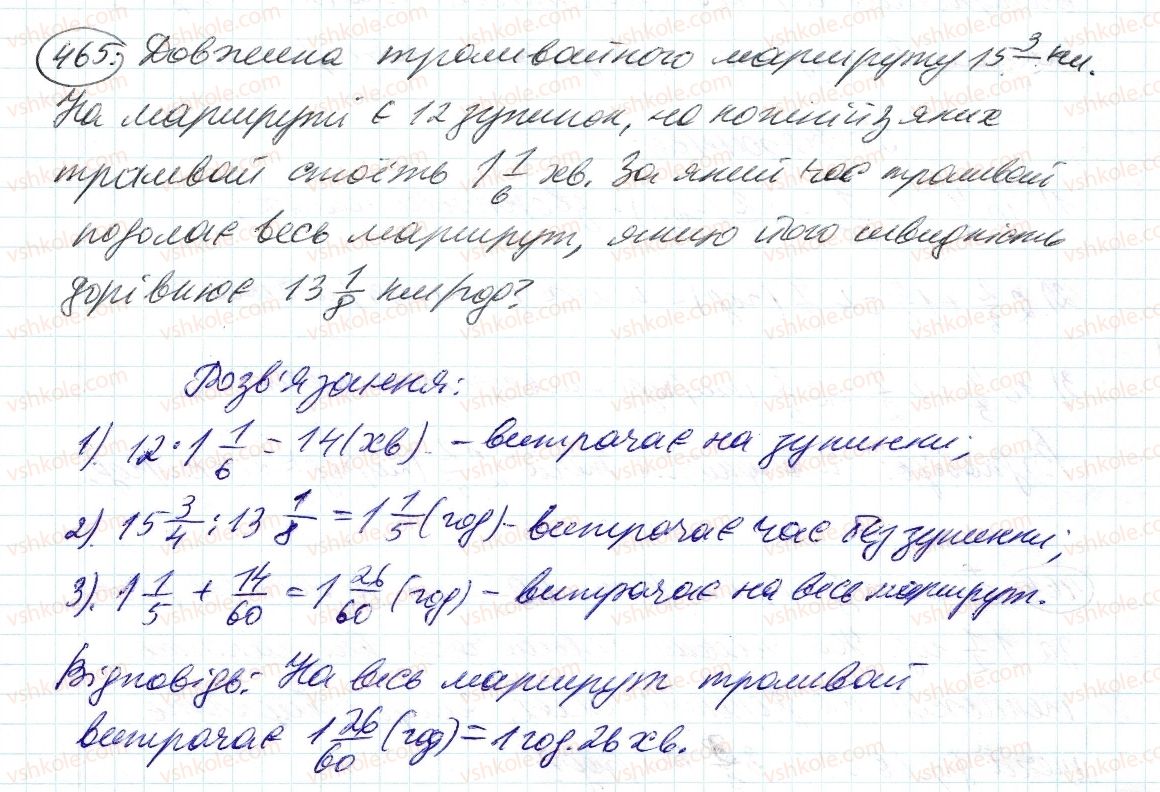 465. Довжина трамвайного маршруту 15 3/ км.
На маршруті є 12 зупинок, на кожній із яких
трамвай стоїть 1 1/6 хв. За який час трамвай
подолає весь маршрут, якщо його швидкість
дорівнює 13 1/8 км/год?
Розв'язання:
1). 12 · 1 1/6 = 14 (хв) - витрачає на зупинки;
2). 15 3/4 : 13 1/8 = 1 1/5 (год) - витрачає час без зупинки;
3). 1 1/5 + 14/60 = 1 26/60 (год) - витрачає на весь маршрут.
Відповідь: На весь маршрут трамвай
витрачає 1 26/60 (год) = 1 год. 26 хв.